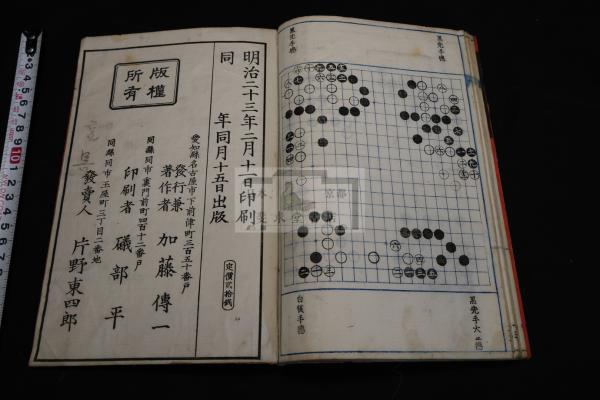 黒先手徳
黒先手徳
白後手徳
明治二十三年二月十一日印刷
同年同月十五日出版
定價貳拾銭
愛知縣名古屋市下前津町三百五十番戸
發行兼
著作者 加藤傳一
同縣同市裏門前町四百十二番戸
印刷者 礒部平
同縣同市玉屋町三丁目二番地
發賣人 片野東四郎
版權
所有